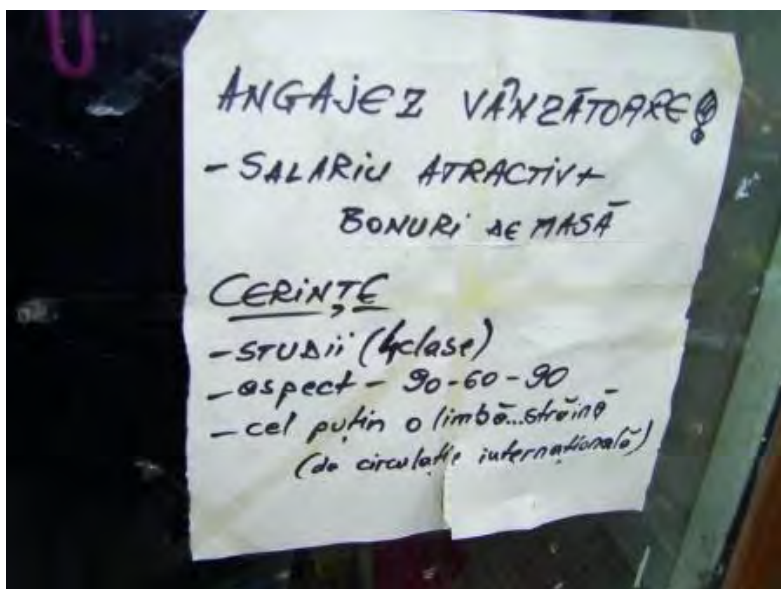 ANGAJEZ VÂNZĂTOARE!
- SALARIU ATRACTIV +
BONURI DE MASĂ
CERINȚE
- STUDII (4 clase)
- aspect - 90-60-90
- cel puțin o limbă... străină
(de circulație internațională)